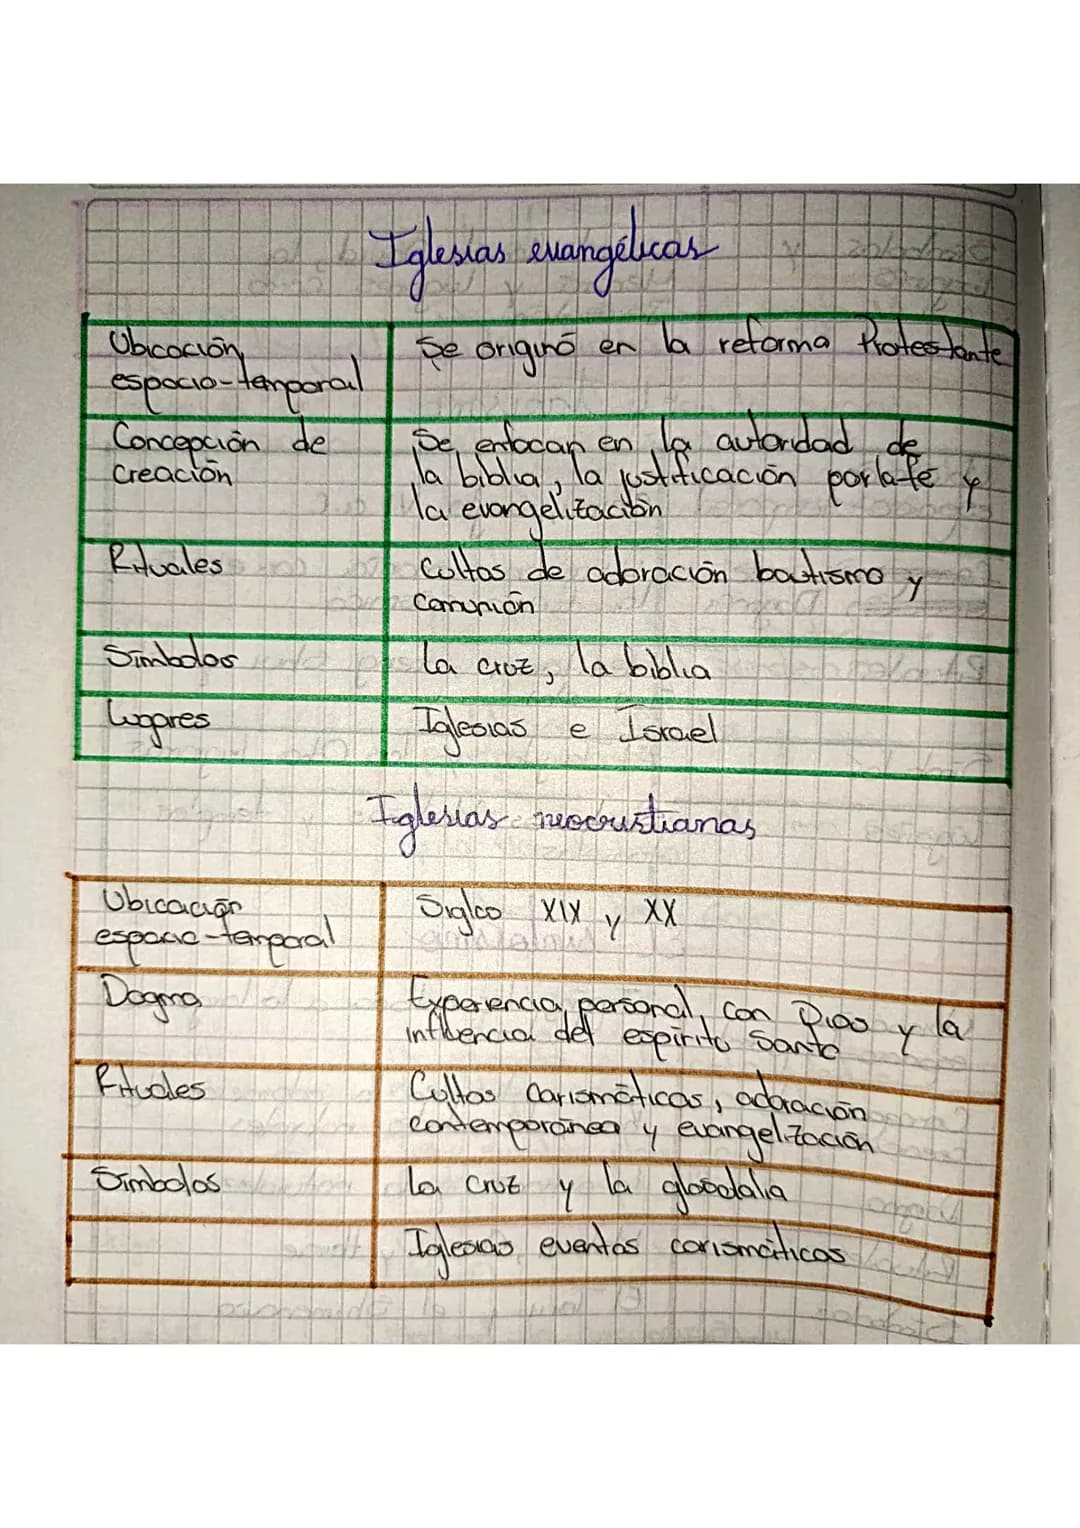 Iglesias evangélicas
Ubicación espacio-temporal
Se originó en la reforma Protestante
Concepción de creación
Se enfocan en la autoridad de
la biblia, la justificación por la fe y
la evangelización
Rituales
Cultos de adoración bautismo y
comunión
Símbolos
La cruz, la biblia
Lugares
Iglesias e Israel
Iglesias neocristianas
Ubicación espacio-temporal
Siglco XIX y XX
Dogma
Experiencia personal con Dios y la
influencia del espíritu Santo
Rituales
Cultos carismáticos, adoración
contemporánea y evangelización
Símbolos
La cruz y la glosolalia
Iglesias eventos carismáticos